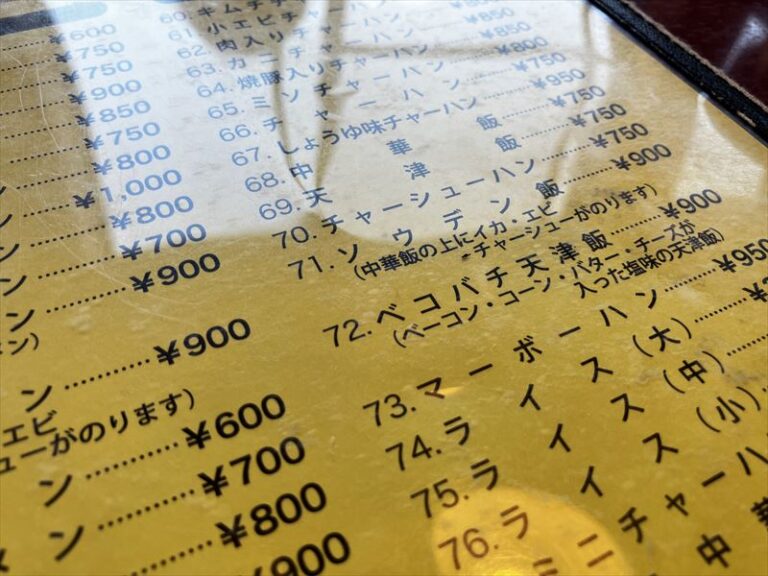 ¥600
¥750
¥750
¥900
¥850
¥750
¥800
¥1,000
¥800
¥700
ン ¥900
ン ¥900
ン)
ン ¥900
エビ
ューがのります)
ン ¥600
ン ¥700
メン ¥800
¥900
60. キムチチ
61. 小エビチャーハン
62. 肉入りチャーハン
63. カニチャーハン
64. 焼豚入りチャーハン
65. ミソチャーハン
66. チャーハン
67. しょうゆ味チャーハン
68. 中華飯 ¥750
69. 天津飯 ¥750
70. チャーシューハン ¥750
71. ソウデン飯 ¥900
(中華飯の上にイカ・エビ
チャーシューがのります)
72. ベコバチ天津飯 ¥900
(ベーコン・コーン・バター・チーズが
入った塩味の天津飯)
73. マーボーハン ¥950
74. ライス(大)
75. ライス(中)
76. ライス(小)
ミニチャーハ
中華